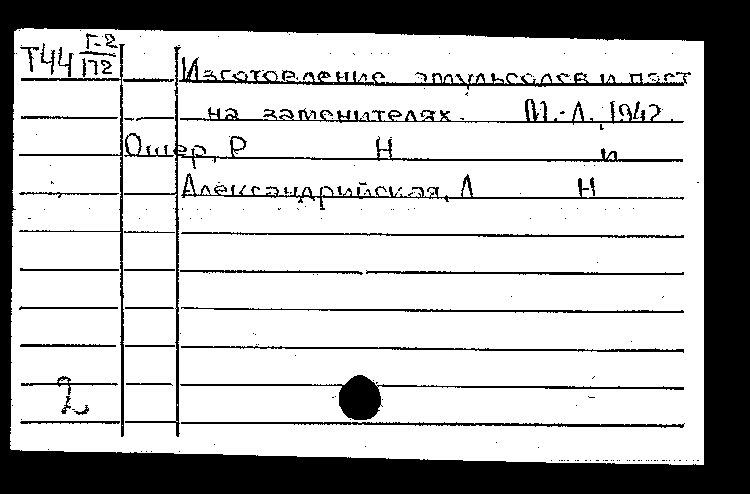 Т44 Г-2/172
Изготовление эмульсолов и паст
на заменителях. М.-Л., 1942.
Ошер, Р Н и
Александрийская, Л Н
2